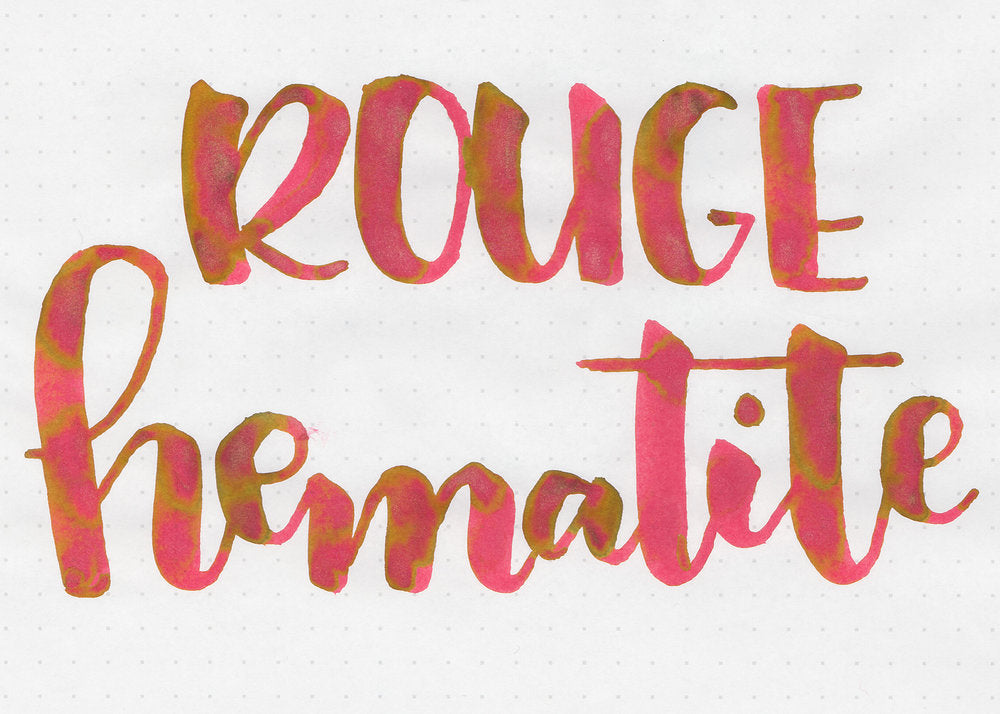 ROUGE
hematite